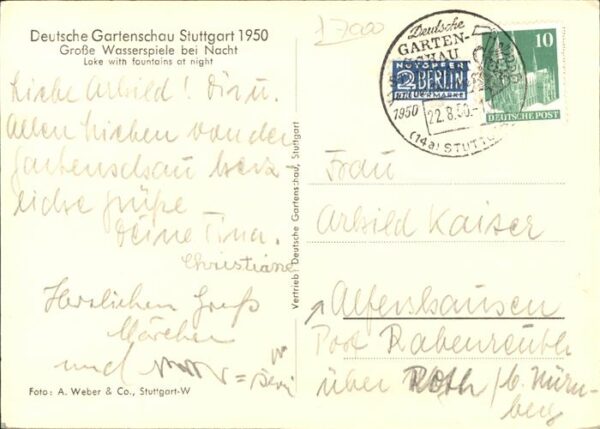 Deutsche Gartenschau Stuttgart 1950
Große Wasserspiele bei Nacht
Lake with fountains at night
Liebe Arbild! Dir u.
Allen Lieben von der
Gartenschau herz
liche Grüße
Deine Tina.
Christiane
Herzlichen Gruß
Märchen
und
Foto: A. Weber & Co., Stuttgart-W
Vertrieb: Deutsche Gartenschau, Stuttgart
17000
Deutsche
GARTEN-
SCHAU
1950
22.8.50.-
(14a) STUTTG
NOTOPFER
2 BERLIN
STEUERMARKE
10
DEUTSCHE POST
Frau
Arbild Kaiser
Alfershausen
Post Rabenreuth
über Roth / b. Nürn-
berg